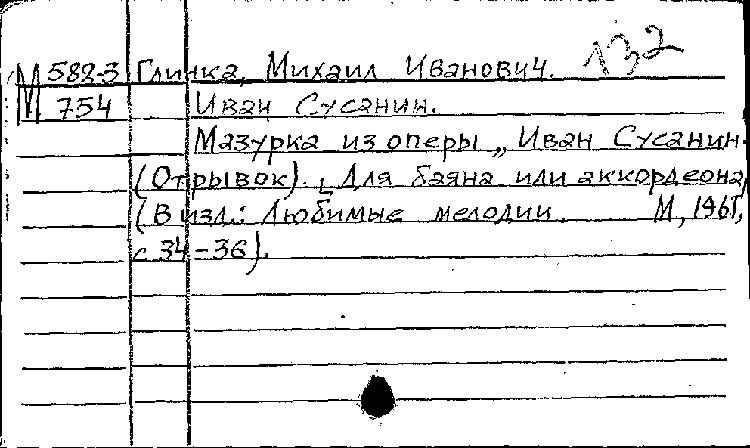 М 582-3 Глинка, Михаил Иванович. 132
М 754 Иван Сусанин.
Мазурка из оперы „Иван Сусанин.
(Отрывок). [Для баяна или аккордеона]
(В изд.: Любимые мелодии. М, 1965,
с 34-36).